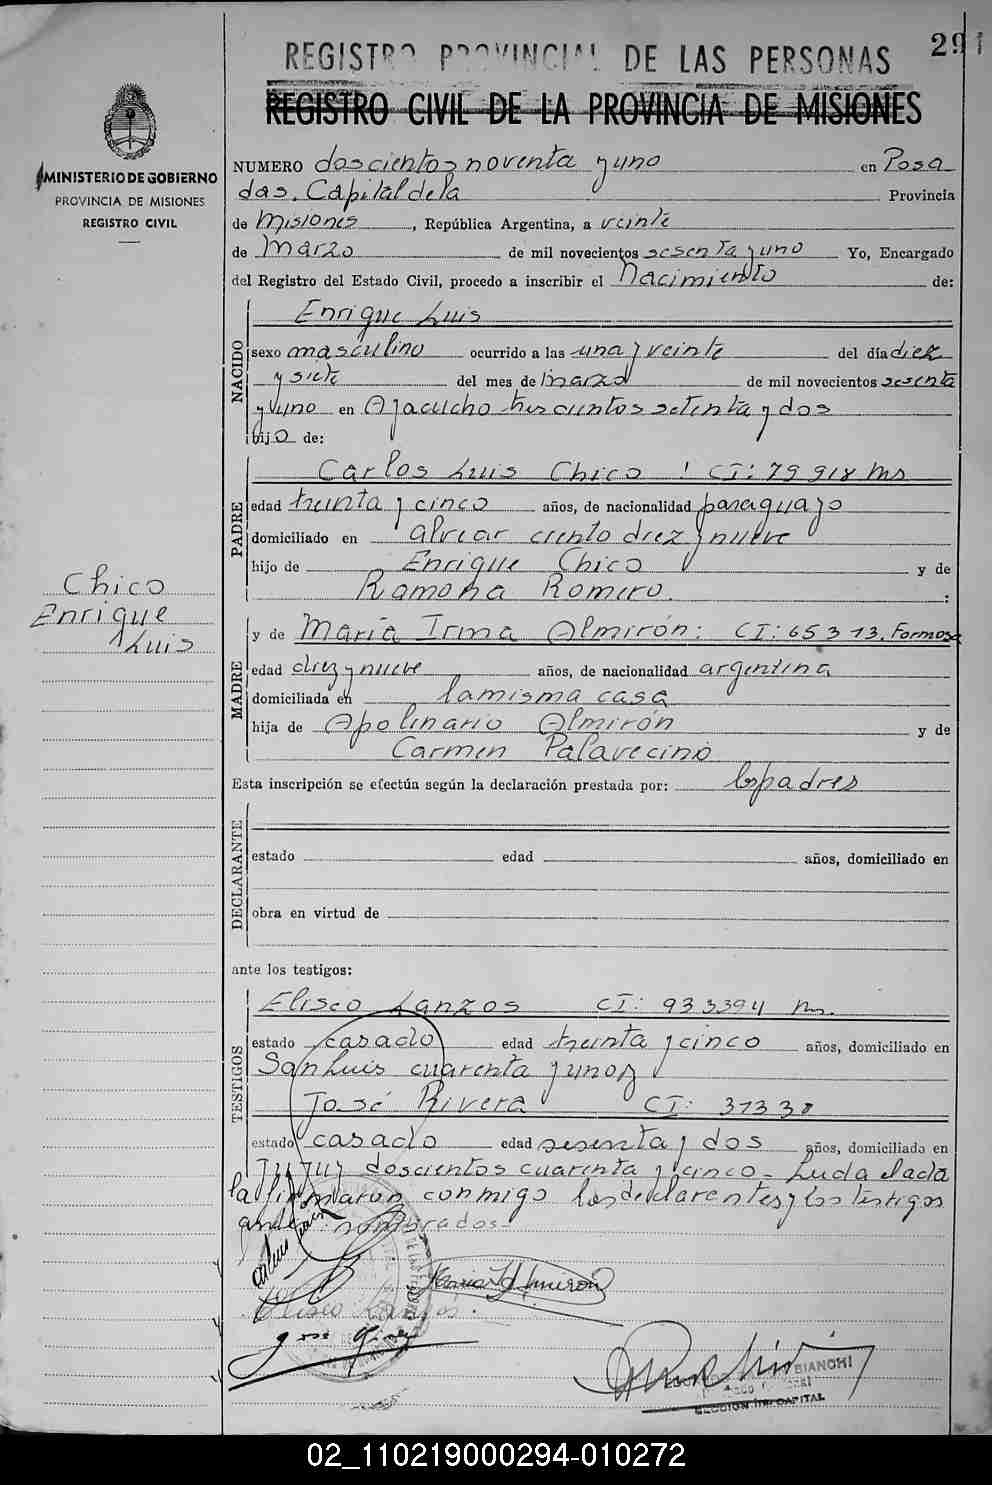 REGISTRO PROVINCIAL DE LAS PERSONAS
291
REGISTRO CIVIL DE LA PROVINCIA DE MISIONES
MINISTERIO DE GOBIERNO
PROVINCIA DE MISIONES
REGISTRO CIVIL
NUMERO doscientos noventa y uno en Posa
das. Capital de la Provincia
de Misiones, República Argentina, a veinte
de Marzo de mil novecientos sesenta y uno Yo, Encargado
del Registro del Estado Civil, procedo a inscribir el Nacimiento de:
NACIDO
Enrique Luis
sexo masculino ocurrido a las una y veinte del día diez
y siete del mes de marzo de mil novecientos sesenta
y uno en Ayacucho trescientos setenta y dos
hijo de:
PADRE
Carlos Luis Chico CI: 79918 Ms
edad treinta y cinco años, de nacionalidad paraguayo
domiciliado en alvear ciento diez y nueve
hijo de Enrique Chico y de
Ramona Romero. :
Chico
Enrique
Luis
MADRE
y de María Irma Almirón: CI: 65313. Formosa
edad diez y nueve años, de nacionalidad argentina
domiciliada en la misma casa
hija de Apolinario Almirón y de
Carmen Palavecino
Esta inscripción se efectúa según la declaración prestada por: los padres
DECLARANTE
estado edad años, domiciliado en
obra en virtud de
ante los testigos:
TESTIGOS
Eliseo Lanzos CI: 933394 Ms.
estado casado edad treinta y cinco años, domiciliado en
San Luis cuarenta y uno y
José Rivera CI: 37330
estado casado edad sesenta y dos años, domiciliado en
Jujuy doscientos cuarenta y cinco - Leida el acta
la firmaron conmigo los declarantes y los testigos
antes nombrados
Maria I Almirón
Eliseo Lanzós.
BIANCHI
SECCION 1ra CAPITAL
02_110219000294-010272